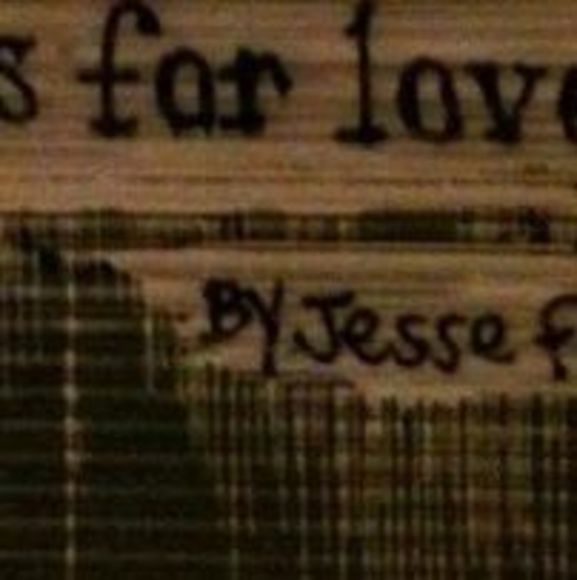 s for love
By Jesse